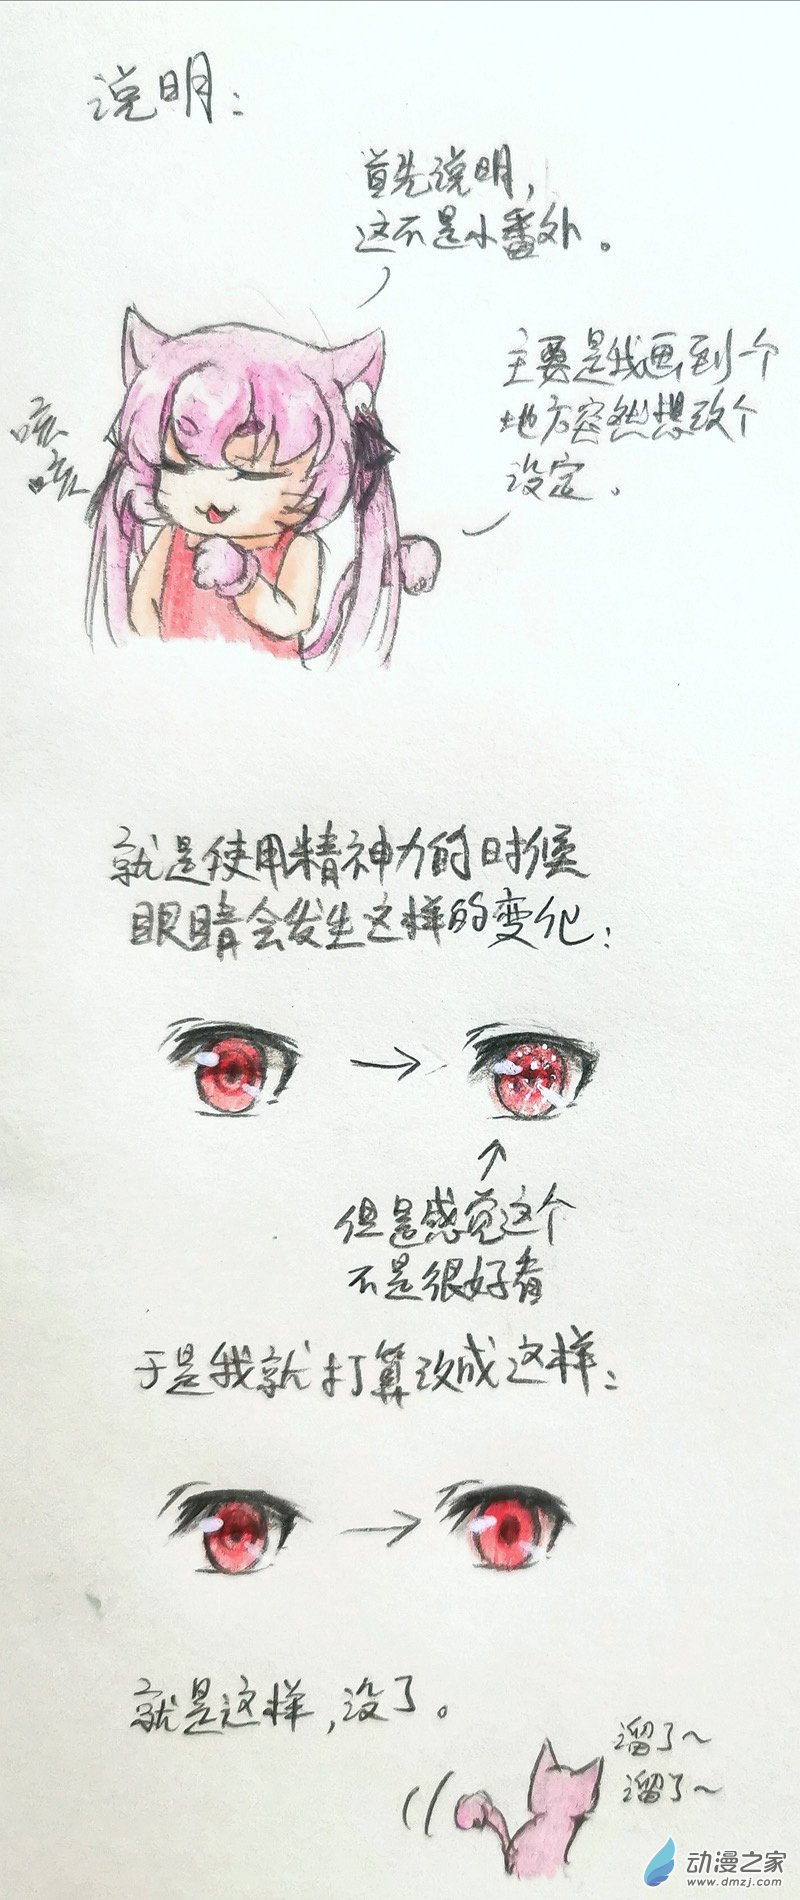 说明：
首先说明，
这不是小番外。
咳
咳
主要是我画到个
地方突然想改个
设定。
就是使用精神力的时候
眼睛会发生这样的变化：
但是感觉这个
不是很好看
于是我就打算改成这样：
就是这样，没了。
溜了~
溜了~
动漫之家
www.dmzj.com